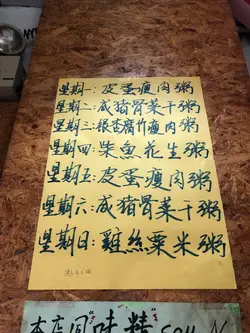 星期一:皮蛋瘦肉粥
星期二:咸猪骨菜干粥
星期三:银杏腐竹瘦肉粥
星期四:柴魚花生粥
星期五:皮蛋瘦肉粥
星期六:咸猪骨菜干粥
星期日:雞絲粟米粥
本店同"味精"